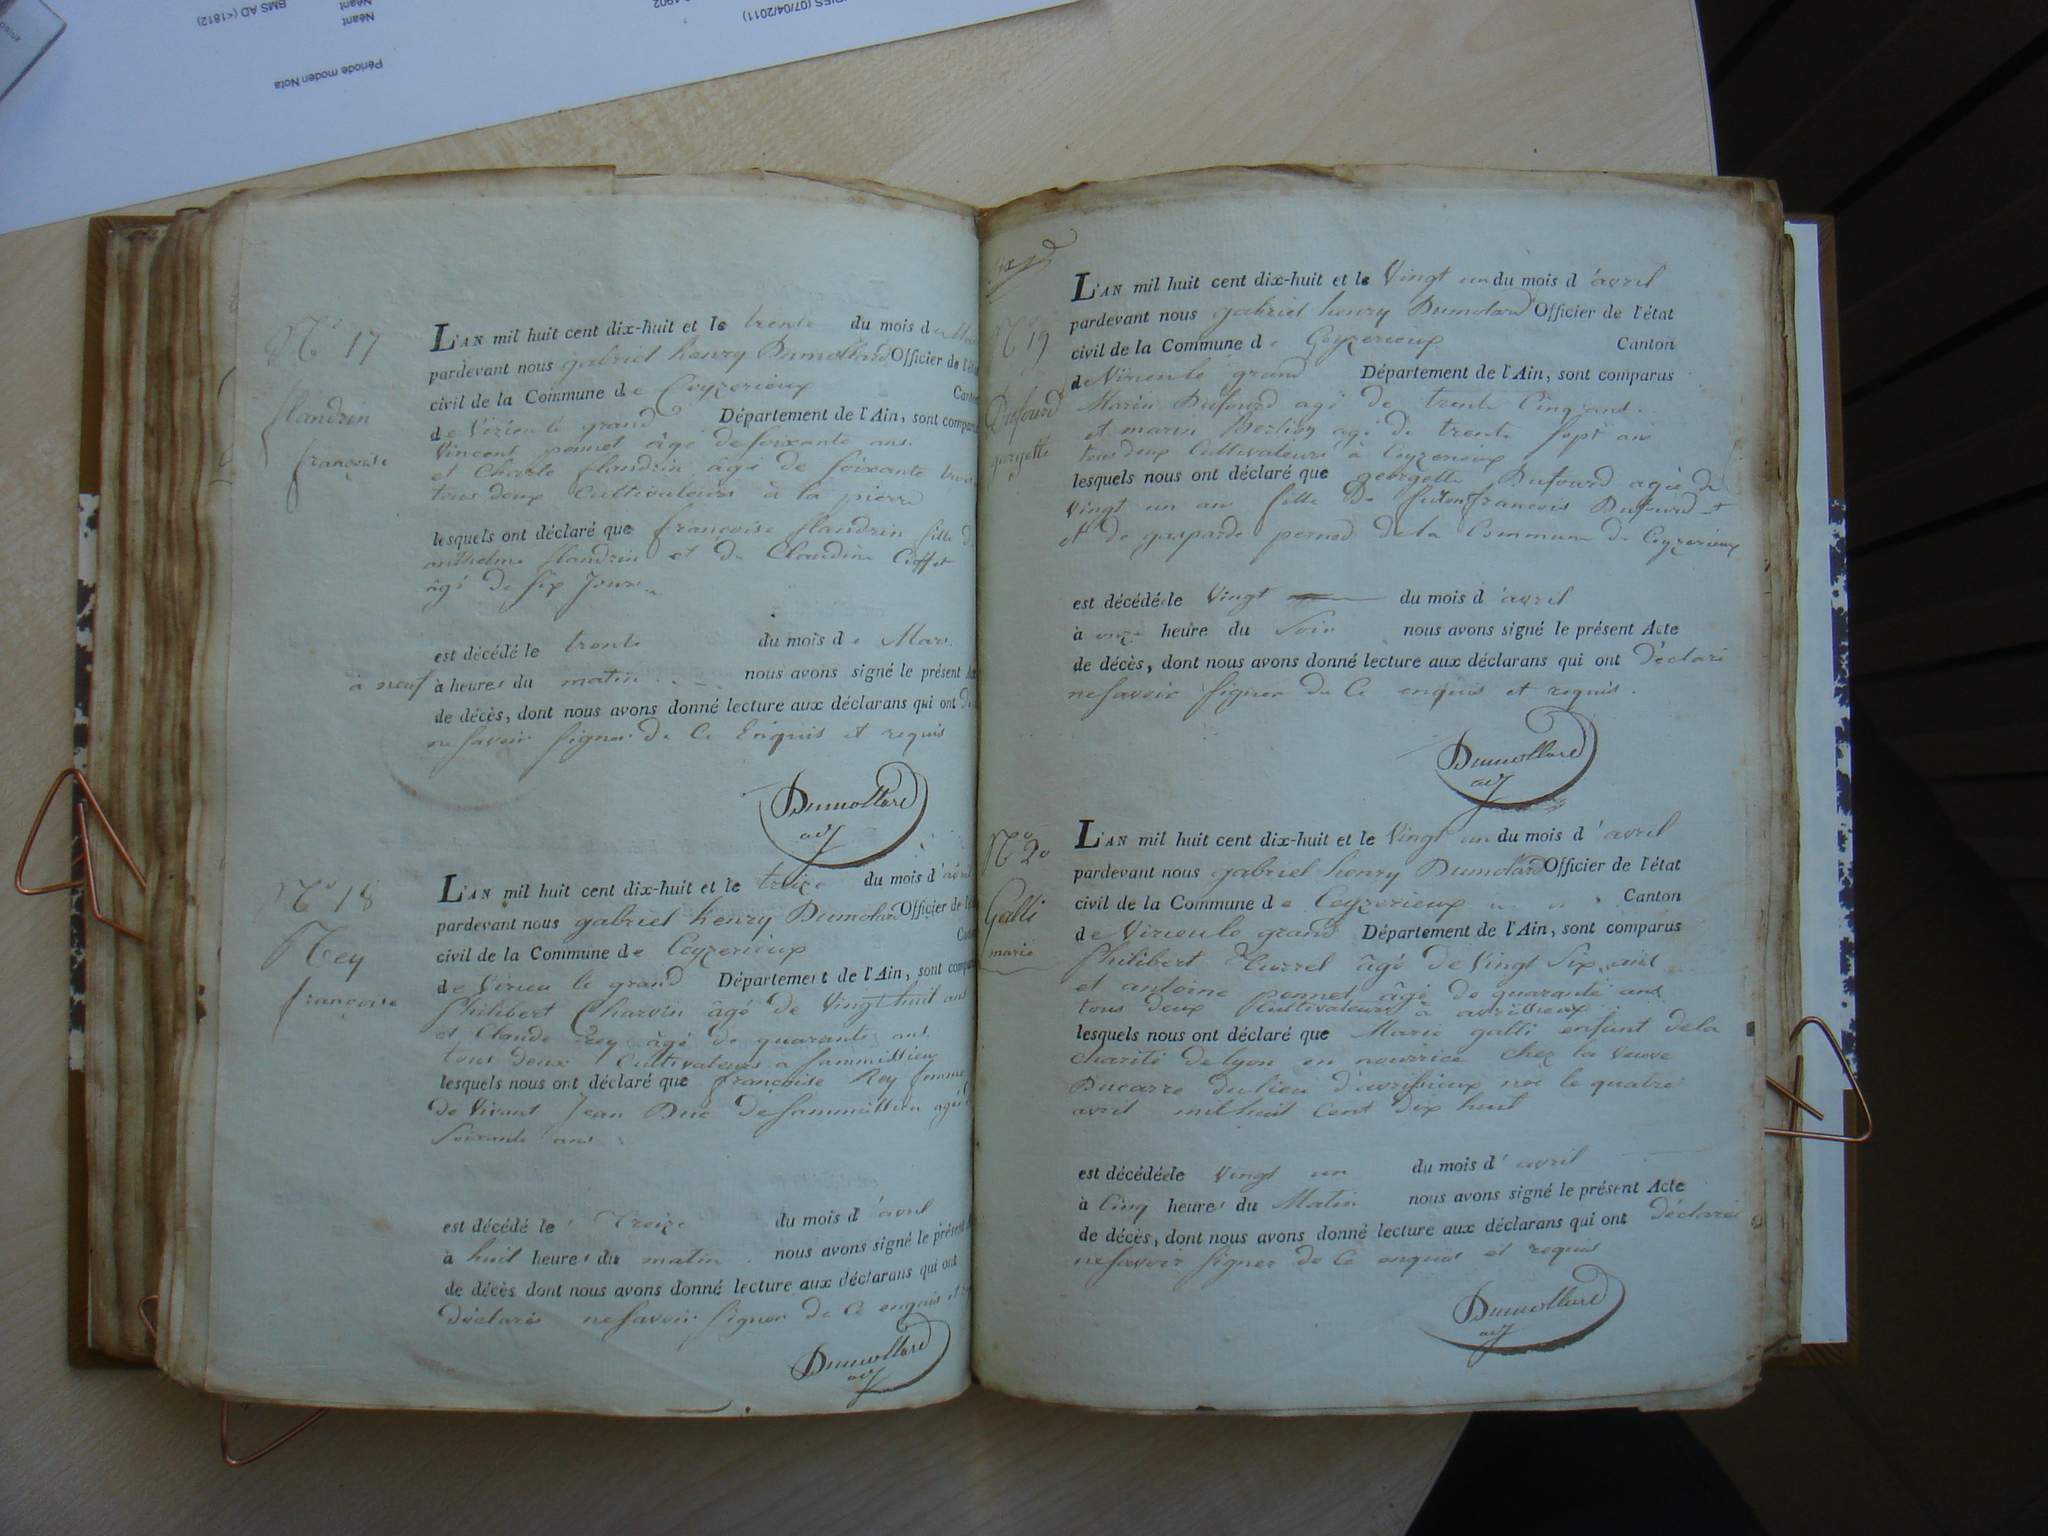 Période moden Nota
Néant
Néant
BMS AD (<1812)
(07/04/2011)
1902
N° 17
flandrin
françoise
L'AN mil huit cent dix-huit et le trente du mois de
pardevant nous gabriel henry Dumollard Officier de l'état
civil de la Commune de Ceyzerieux Canton
de Virieu le grand Département de l'Ain, sont comparus
Vincent pernet âgé de soixante ans
et Charle flandrin âgé de soixante trois
tous deux Cultivateurs à la pierre
lesquels ont déclaré que françoise flandrin fille de
anthelme flandrin et de Claudine
âgé de six Jours
est décédé le trente du mois de Mars
à neuf à heures du matin nous avons signé le présent
de décès, dont nous avons donné lecture aux déclarans qui ont
ne savoir signer de Ce Enquis et requis
Dumollard
adj
N° 18
Rey
françoise
L'AN mil huit cent dix-huit et le treize du mois d'avril
pardevant nous gabriel henry Dumolard Officier de
civil de la Commune de Ceyzerieux
de Virieu le grand Département de l'Ain, sont
philibert Charvin âgé de Vingt huit ans
et Claude Rey âgé de quarante ans
tous deux Cultivateurs à
lesquels nous ont déclaré que françoise Rey femme
de Vivant Jean Duc de agée
Soixante ans
est décédé le Treize du mois d'avril
à huit heures du matin nous avons signé le présent
de décès dont nous avons donné lecture aux déclarans qui ont
déclarés ne savoir signer de Ce enquis et
Dumollard
adj
N° 19
Dufourd
georgette
L'AN mil huit cent dix-huit et le Vingt un du mois d'avril
pardevant nous gabriel henry Dumolard Officier de l'état
civil de la Commune de Ceyzerieux Canton
de Virieu le grand Département de l'Ain, sont comparus
Marin Dufourd agé de trente Cinq ans
et marin Berlioz agé de trente sept ans
tous deux Cultivateurs à Ceyzerieux
lesquels nous ont déclaré que georgette Dufourd agée de
Vingt un an fille De françois Dufourd et
et de gasparde pernod de la Commune de Ceyzerieux
est décédée le Vingt du mois d'avril
à onze heure du Soir nous avons signé le présent Acte
de décès, dont nous avons donné lecture aux déclarans qui ont déclaré
ne savoir signer de Ce enquis et requis.
Dumollard
adj
N° 20
Galli
marie
L'AN mil huit cent dix-huit et le Vingt un du mois d'avril
pardevant nous gabriel henry Dumolard Officier de l'état
civil de la Commune de Ceyzerieux Canton
de Virieu le grand Département de l'Ain, sont comparus
philibert âgé de Vingt Six ans
et antoine pennet âgé de quarante ans
tous deux Cultivateurs à avrissieux
lesquels nous ont déclaré que Marie galli enfant de la
charité de lyon en nourrice chez la Veuve
Ducarre du lieu d'avrissieux née le quatre
avril mil huit Cent dix huit
est décédée le Vingt un du mois d'avril
à Cinq heures du Matin nous avons signé le présent Acte
de décès, dont nous avons donné lecture aux déclarans qui ont déclarés
ne savoir signer de Ce enquis et requis
Dumollard
adj